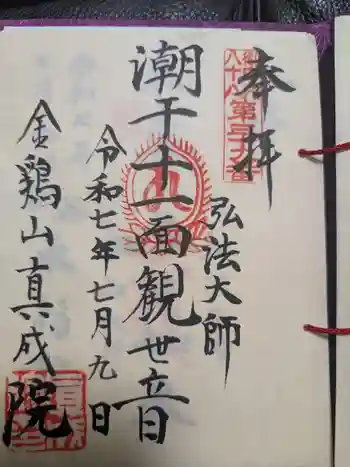 奉拝
第三十九番
弘法大師
潮干十一面観世音
令和七年七月九日
金鶏山真成院